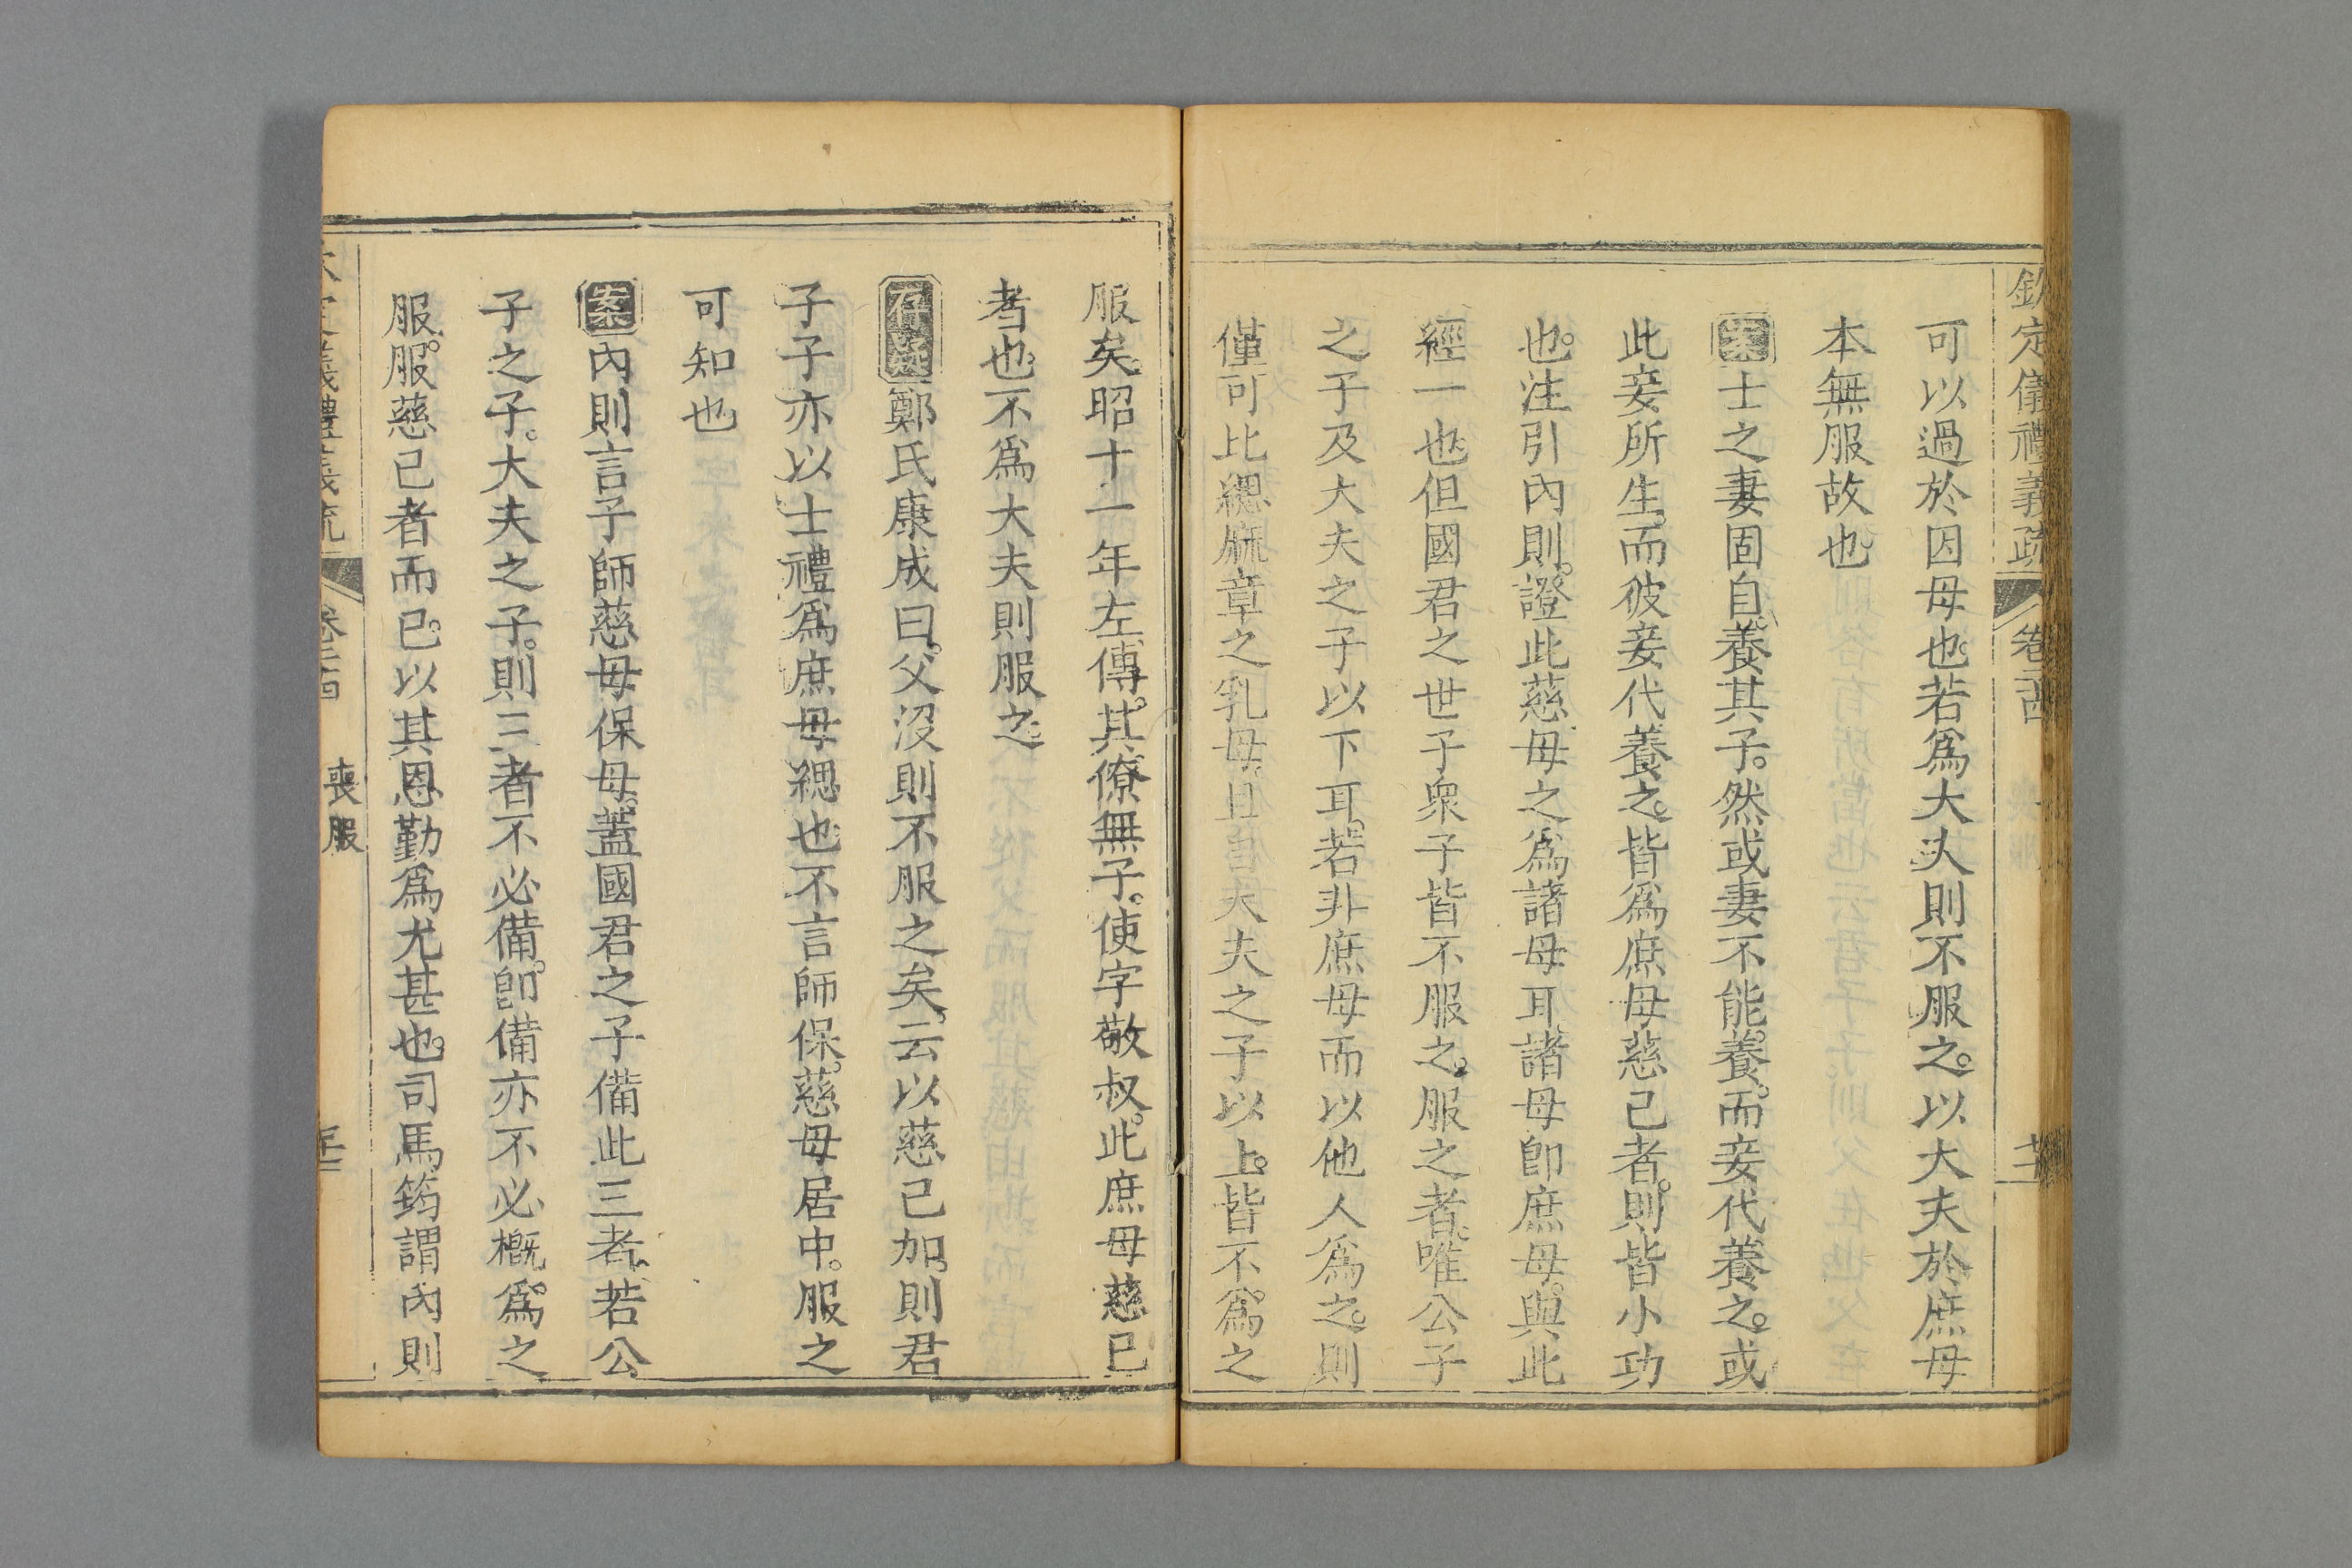 欽定儀禮義疏 卷二十四
可以過於因母也若爲大夫則不服之。以大夫於庶母
本無服故也
案士之妻固自養其子。然或妻不能養。而妾代養之。或
此妾所生。而彼妾代養之。皆爲庶母慈己者。則皆小功
也。注引內則。證此慈母之爲諸母耳。諸母卽庶母。與此
經一也。但國君之世子衆子皆不服之。服之者。唯公子
之子及大夫之子以下耳。若非庶母而以他人爲之。則
僅可比緦麻章之乳母。且自大夫之子以上。皆不爲之
服矣。昭十一年左傳。其僚無子。使字敬叔。此庶母慈已
者也。不爲大夫則服之。
存疑鄭氏康成曰。父沒則不服之矣。云以慈己加。則君
子子亦以士禮爲庶母緦也。不言師保。慈母居中。服之
可知也
案內則言子師慈母保母。蓋國君之子備此三者。若公
子之子。大夫之子。則三者不必備。卽備亦不必槪爲之
服。服慈己者而已。以其恩勤爲尤甚也。司馬筠謂內則
儀禮義疏 卷二十四 喪服